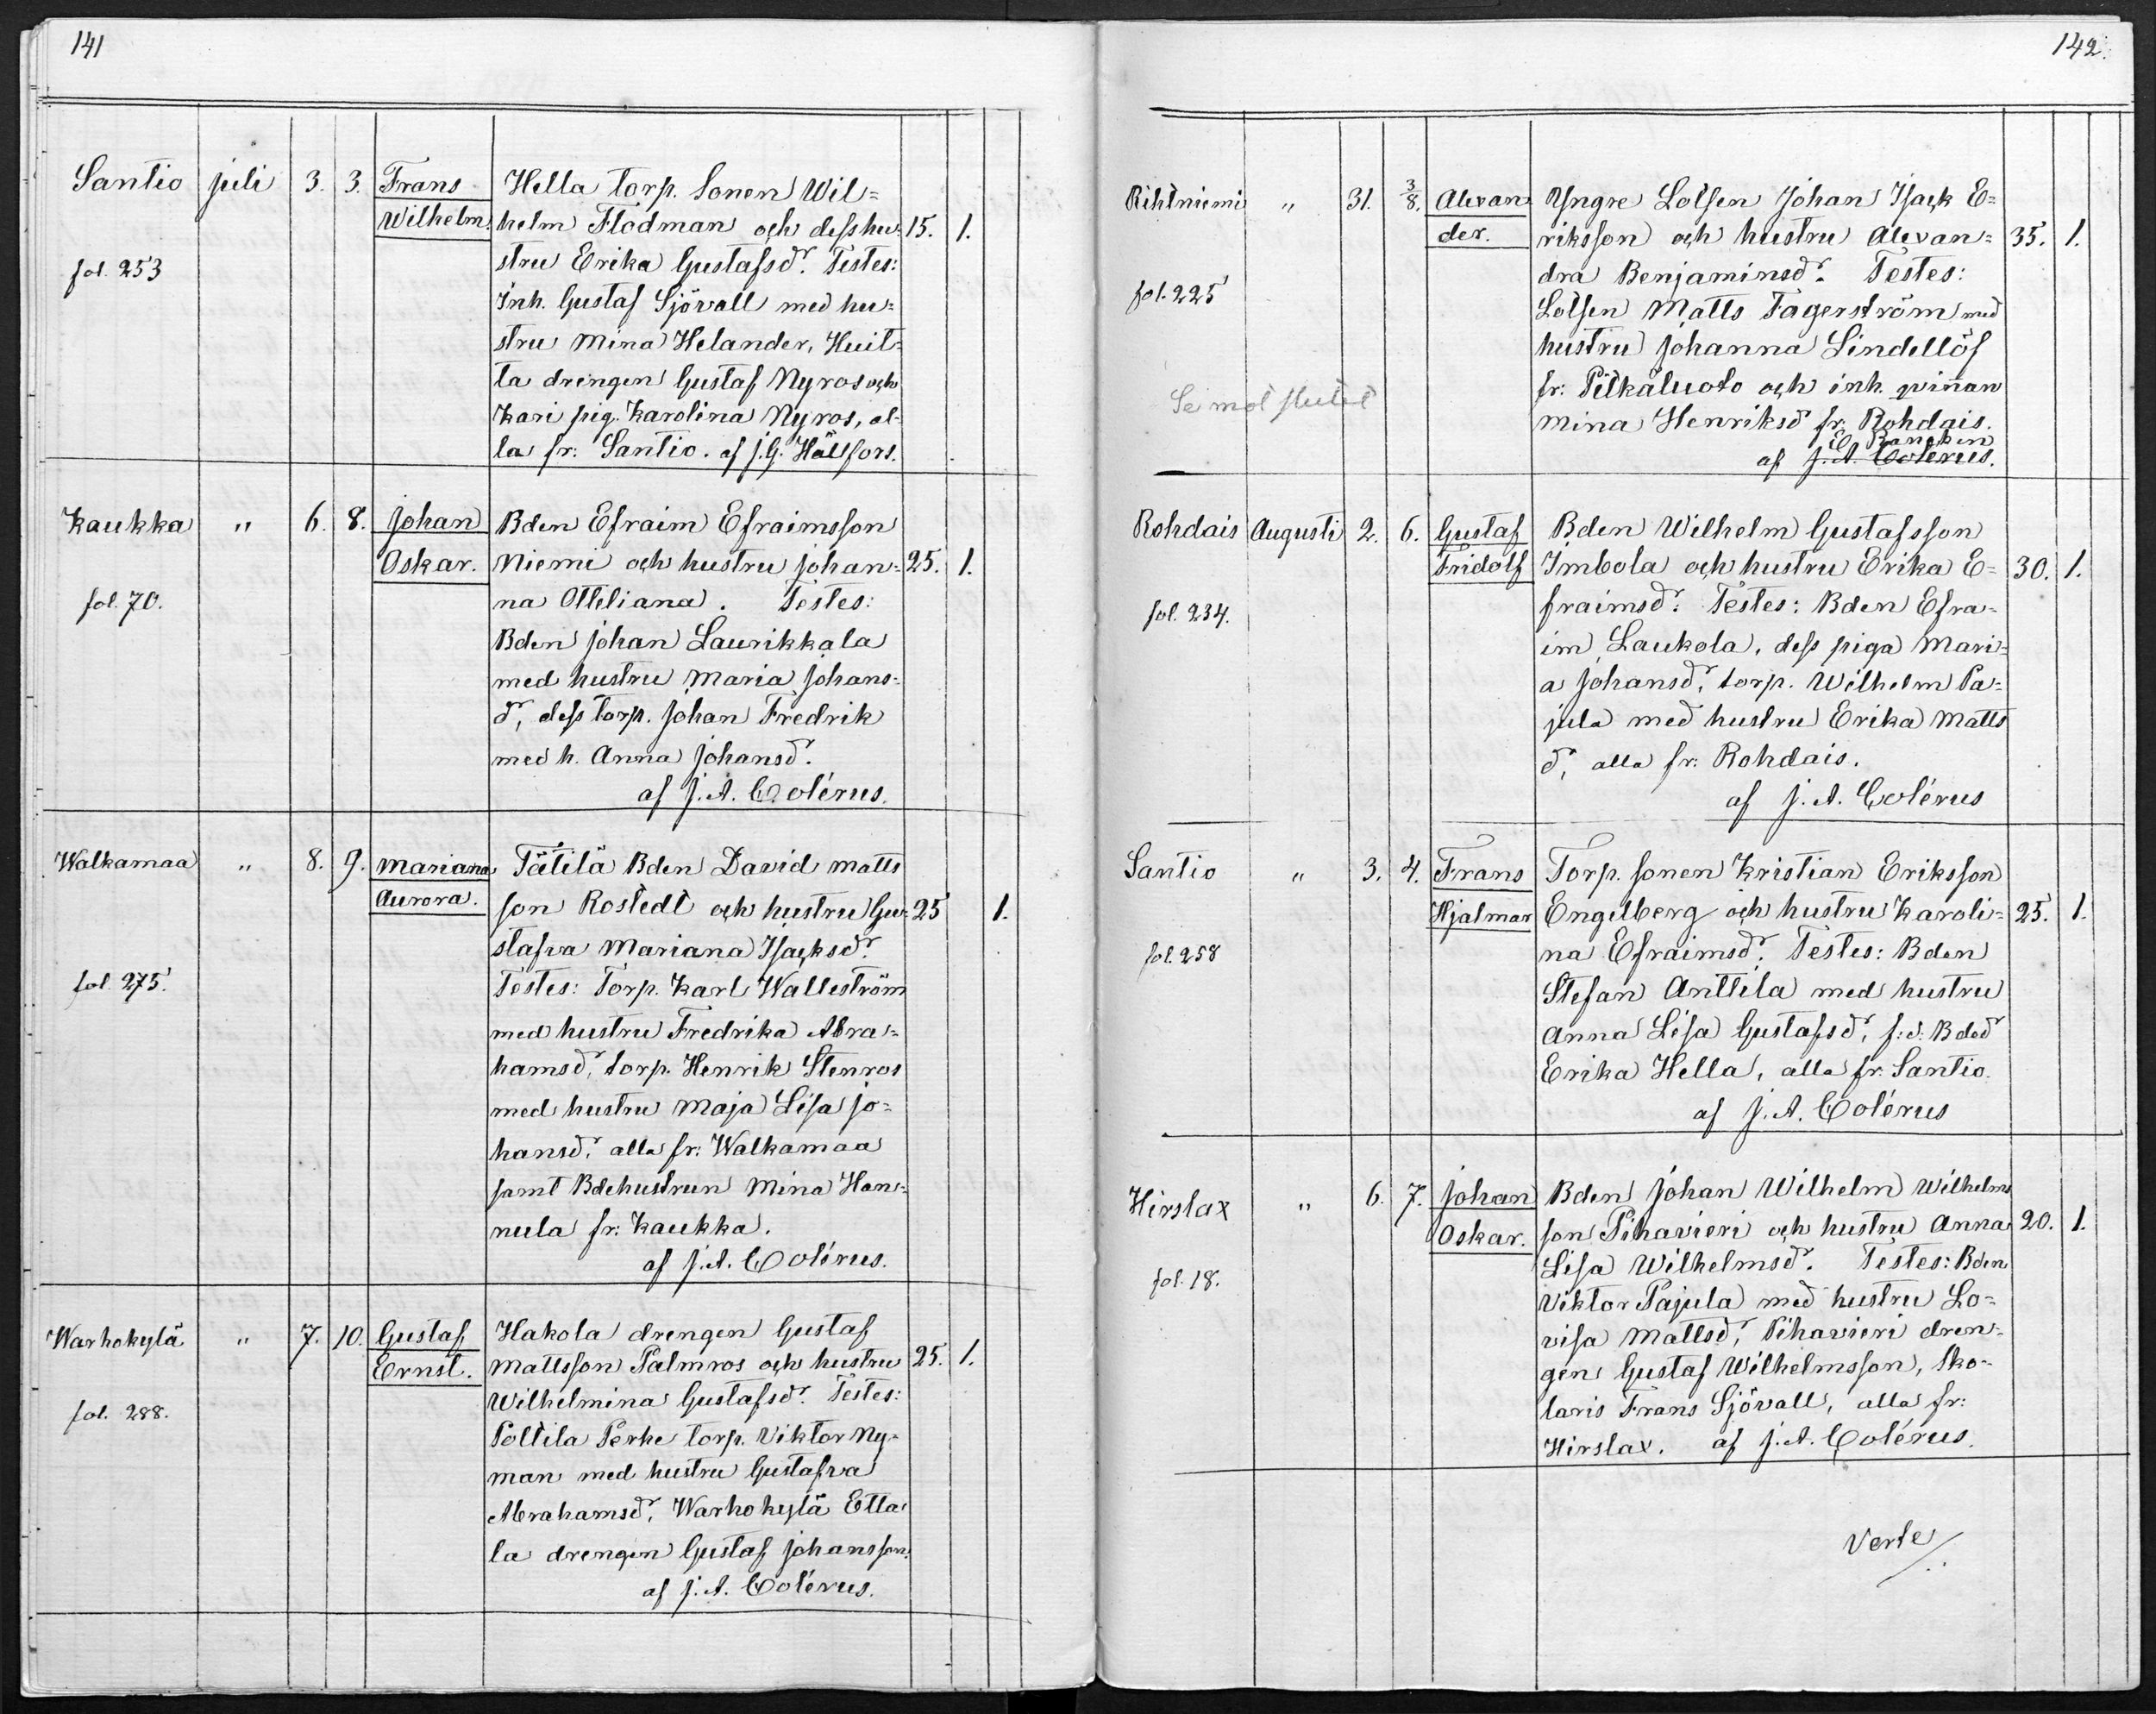 141
Santio juli 3. 3. Frans Hella torp. Sonen Wil=
Wilhelm. helm Flodman och dess hu= 15. 1.
stru Erika Gustafsdr. Testes:
fol. 253
Inh. Gustaf Sjövall med hu=
stru Mina Helander, Huit=
ta drengen Gustaf Nyros och
Kari pig. Karolina Nyros, al=
la fr: Santio. af J.G. Hällfors.
Kaukka " 6. 8. Johan Bden Efraim Efraimsson
Oskar. Niemi och hustru Johan= 25. 1.
fol. 70. na Otteliana. Testes:
Bden Johan Laurikkala
med hustru Maria Johans=
dr, dess torp. Johan Fredrik
med h. Anna Johansdr.
af J. A. Colérus.
Walkamaa " 8. 9. Mariana Tätilä Bden David Matts
Aurora. son Rostedt och hustru Gu= 25 1.
stafva Mariana Isacksdr.
fol. 275. Testes: Torp. Karl Walleström
med hustru Fredrika Abra=
hamsdr, torp. Henrik Stenros
med hustru Maja Lisa Jo=
hansdr. alla fr: Walkamaa
samt Bdehustrun Mina Han=
nula fr: Kaukka.
af J. A. Colérus.
Warhokylä " 7. 10. Gustaf Hakola drengen Gustaf
Ernst. Mattsson Palmros och hustru 25. 1.
Wilhelmina Gustafsdr. Testes:
fol. 288.
Poltila Perhe torp. Viktor Ny=
man med hustru Gustafva
Abrahamsdr, Warhokylä Etta=
la drengen Gustaf Johansson.
af J. A. Colérus.
142.
Rihtniemi " 31. 3/8. Alexan Yngre Lotsen Johan Isack E=
der. riksson och hustru Alexan= 35. 1.
dra Benjaminsdr. Testes:
fol. 225
Lotsen Matts Fagerström med
hustru Johanna Lindellöf
fr: Pitkäluoto och inh. qvinnan
Se mot slutet
Mina Henriksdr fr: Rohdais.
E. Rancken
af J. A. Colérus.
Rohdais Augusti 2. 6. Gustaf Bden Wilhelm Gustafsson
Fridolf Imbola och hustru Erika E= 30. 1.
fol. 234. fraimsdr. Testes: Bden Efra=
im Laukola, dess piga Mari=
a Johansdr, torp. Wilhelm Pa=
jula med hustru Erika Matts
dr, alla fr: Rohdais.
af J. A. Colérus
Santio " 3. 4. Frans Torp. sonen Kristian Eriksson
Hjalmar Engelberg och hustru Karoli= 25. 1.
fol. 258 na Efraimsdr. Testes: Bden
Stefan Anttila med hustru
Anna Lisa Gustafsdr, f:d: Bdedr
Erika Hella, alla fr: Santio.
af J. A. Colérus
Hirslax " 6. 7. Johan Bden Johan Wilhelm Wilhelms
Oskar. son Pihavieri och hustru Anna 20. 1.
Lisa Wilhelmsdr. Testes: Bden
fol. 18.
Viktor Pajula med hustru Lo=
visa Mattsdr, Pihavieri dren=
gen Gustaf Wilhelmsson, Sko=
laris Frans Sjövall, alla fr:
Hirslax. af J. A. Colérus.
Verte